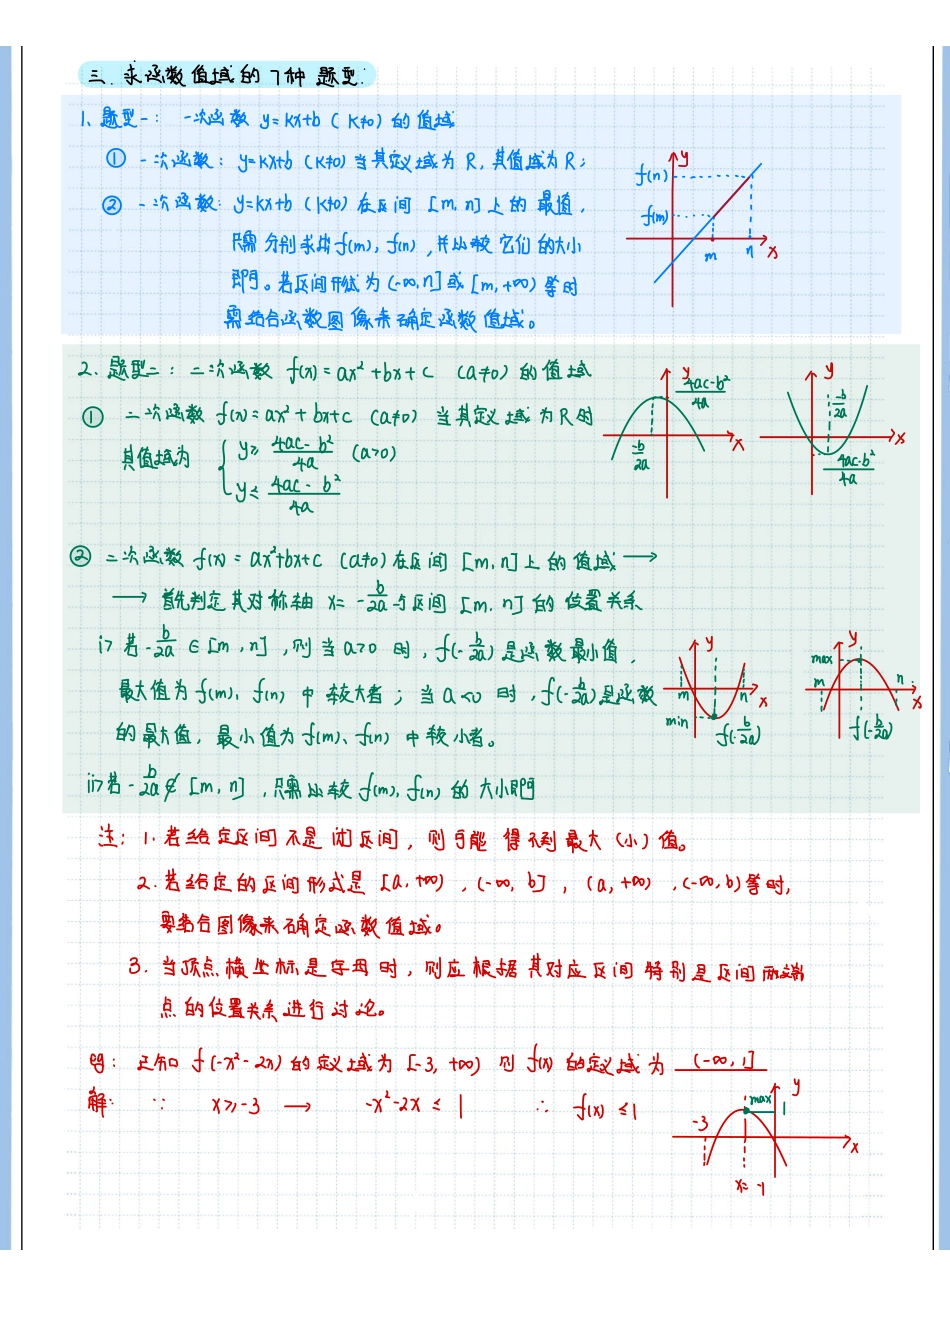 三. 求函数值域的7种 题型:
1、题型一: 一次函数 y=kx+b (k≠0) 的值域
① 一次函数: y=kx+b (k≠0) 当其定义域为 R, 其值域为 R;
② 一次函数: y=kx+b (k≠0) 在区间 [m,n] 上的最值,
只需分别求出 f(m), f(n), 并比较它们的大小
即可。若区间形式为 (-∞,n] 或 [m,+∞) 等时
需结合函数图像来确定函数值域。
y
f(n)
f(m)
m n x
2. 题型二: 二次函数 f(x)=ax²+bx+c (a≠0) 的值域
① 二次函数 f(x)=ax²+bx+c (a≠0) 当其定义域为R时
其值域为 { y≥ (4ac-b²)/4a (a>0)
y≤ (4ac-b²)/4a
y (4ac-b²)/4a
-b/2a x
y
-b/2a
x
(4ac-b²)/4a
② 二次函数 f(x)=ax²+bx+c (a≠0) 在区间 [m,n] 上的值域 →
→ 首先判定其对称轴 x= -b/2a 与区间 [m,n] 的位置关系
i> 若 -b/2a ∈ [m,n], 则当 a>0 时, f(-b/2a) 是函数最小值,
最大值为 f(m)、f(n) 中较大者; 当 a<0 时, f(-b/2a) 是函数
的最大值, 最小值为 f(m)、f(n) 中较小者。
ii> 若 -b/2a ∉ [m,n], 只需比较 f(m), f(n) 的大小即可
y
m n x
min
f(-b/2a)
y
max
m n
x
f(-b/2a)
注: 1. 若给定区间不是闭区间, 则可能得不到最大(小)值。
2. 若给定的区间形式是 [a,+∞), (-∞,b], (a,+∞), (-∞,b) 等时,
要结合图像来确定函数值域。
3. 当顶点横坐标是字母时, 则应根据其对应区间特别是区间两端
点的位置关系进行讨论。
eg: 已知 f(-x²-2x) 的定义域为 [-3,+∞) 则 f(x) 的定义域为 (-∞,1]
解: ∵ x≥-3 → -x²-2x≤1 ∴ f(x)≤1
y
max 1
-3
x
x=-1